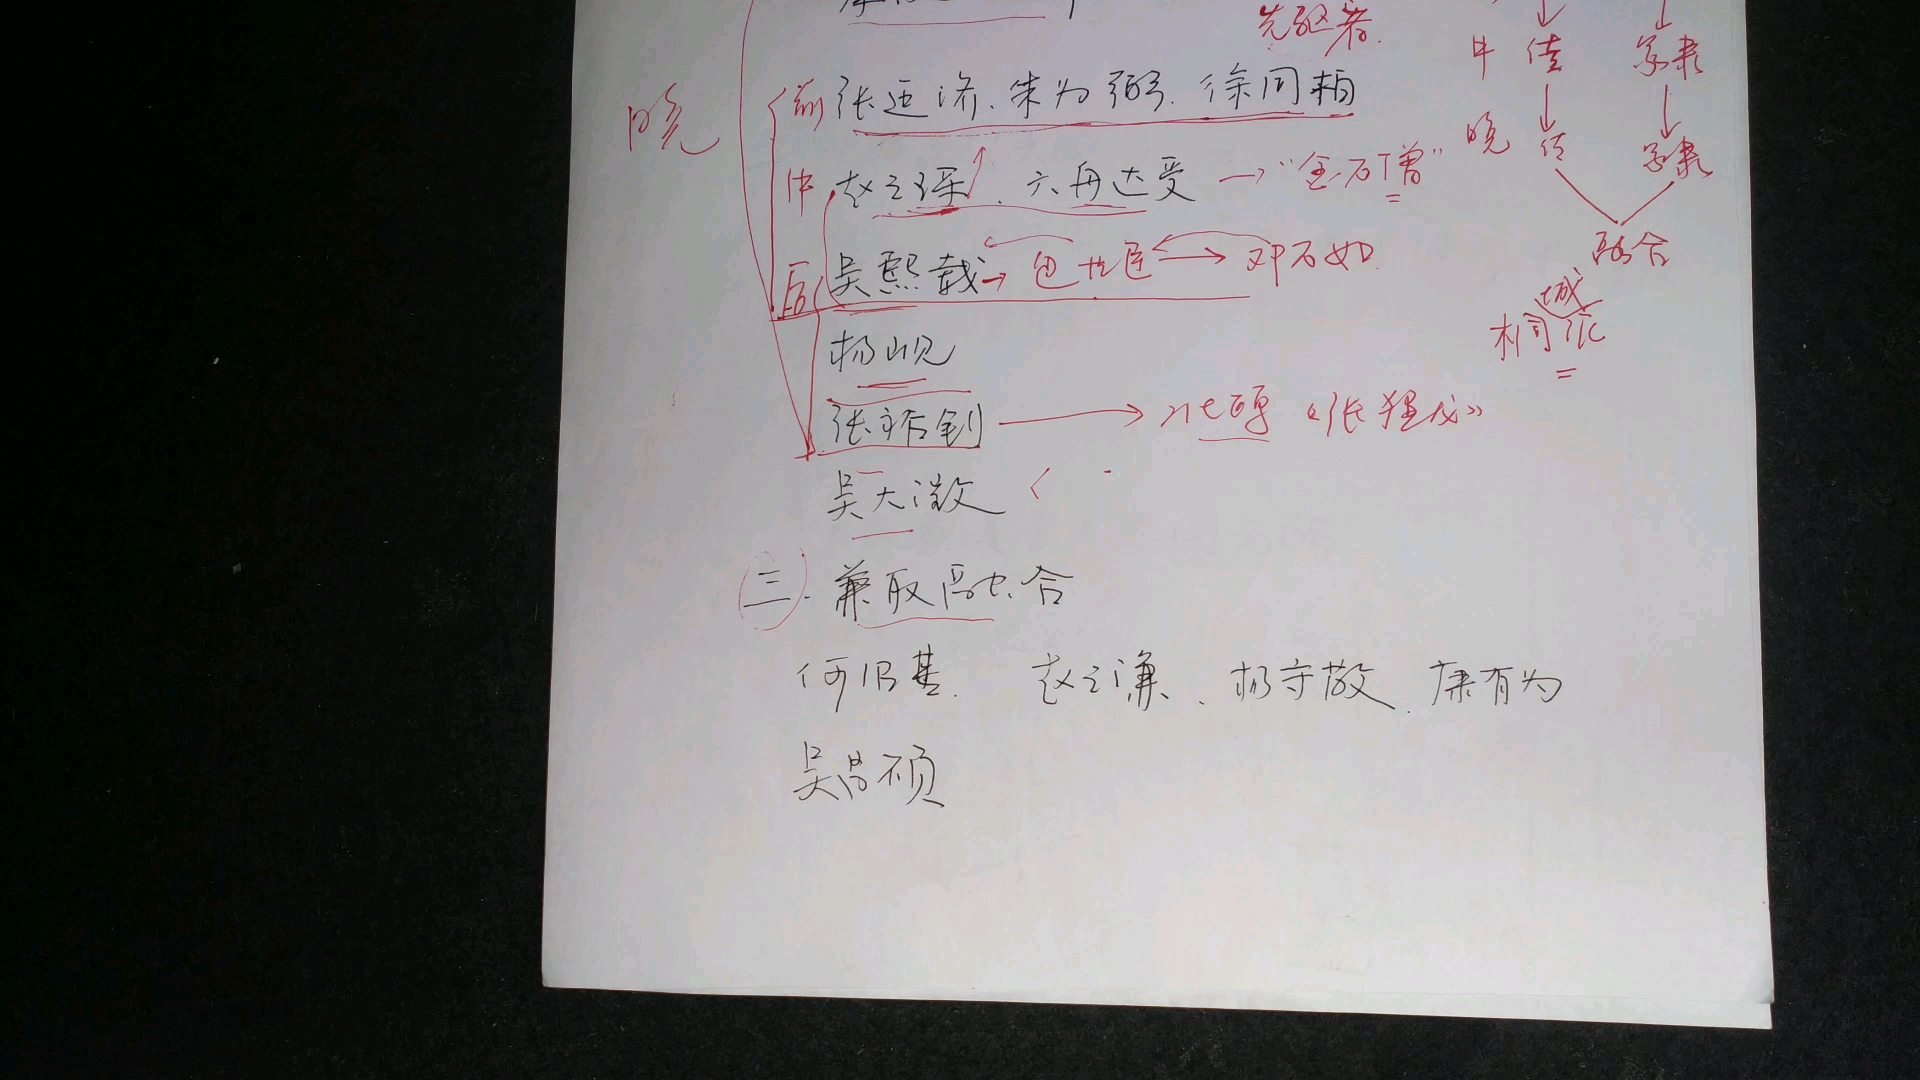 先驱者.
中 传 篆隶
晓
前 张廷济、朱为弼、徐同柏
晓 传 篆隶
中 赵之琛、六舟达受 → "金石僧"
融合
后 吴熙载 → 包世臣 → 邓石如
桐城派
杨岘
张裕钊 → 北碑《张猛龙》
吴大澂
三、兼取融合
何绍基、赵之谦、杨守敬、康有为
吴昌硕